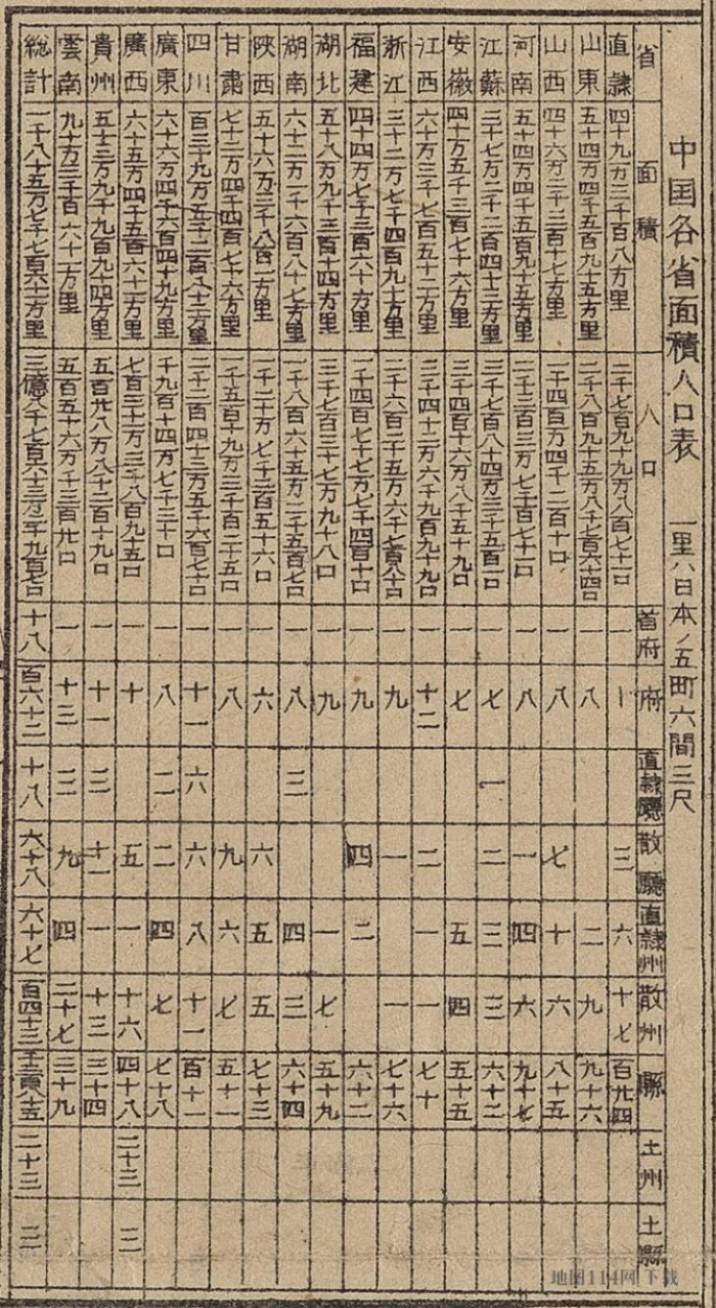 中国各省面積人口表 一里ハ日本ノ五町六間三尺
省 面積 人口 首府 府 直隷廳 散廳 直隷州 散州 縣 土州 土縣
直隷 四十九万三千百八方里 二千七百九十九万八百七十一口 一 十 三 六 十七 百廿四
山東 五十四万四千五百九十五方里 二千八百九十五万八千七百六十四口 一 八 二 九 九十六
山西 四十六万二千三百十七方里 一千四百万四千二百十口 一 八 七 十 六 八十五
河南 五十四万四千五百九十五方里 二千三百三万七千百七十一口 一 八 一 四 六 九十七
江蘇 三十七万二千二百四十二方里 三千七百八十四万三千五百一口 一 七 一 二 三 三 六十二
安徽 四十万五千三百七十六方里 三千四百十六万八千五十九口 一 七 五 四 五十五
江西 六十万三千七百五十二方里 二千四十二万六千九百九十九口 一 十二 二 一 一 七十
浙江 三十二万七千四百九十方里 二千六百二十五万六千七百 一 九 一 一 七十六
福建 四十四万七千三百六十方里 一千四百七十七万七千四百十口 一 九 四 二 六十二
湖北 五十八万九千三百十四方里 三千七百三十七万九十八口 一 九 一 七 五十九
湖南 六十二万一千六百八十七方里 一千八百六十五万二千五百七口 一 八 三 四 三 六十四
陝西 五十六万三千八百二方里 一千二十万七千二百五十六口 一 六 六 五 五 七十三
甘肅 七十二万四千四百七十六方里 一千五百十九万三千百二十五口 一 八 九 六 七 五十一
四川 百三十九万五千二百八十二方里 二千二百四十三万五千六百七十口 一 十一 六 六 八 十一 百十一
廣東 六十六万四千六百四十九方里 千九百十四万七千三十口 一 八 二 二 四 七 七十八
廣西 六十五万四千五百六十二方里 七百三十一万三千八百九十五口 一 十 五 一 十六 四十八 二十三 三
貴州 五十三万九千九百九十四方里 五百廿八万八千二百十九口 一 十一 三 十一 一 十三 三十四
雲南 九十万三千百六十一方里 五百五十六万千三百廿口 一 十三 三 九 四 二十七 三十九
總計 一千八十五万七千七百六十一方里 三億六千七百六十三万二千九百七口 十八 百六十二 十八 六十八 六十七 百四十三 二十三 三
地图114网 下载